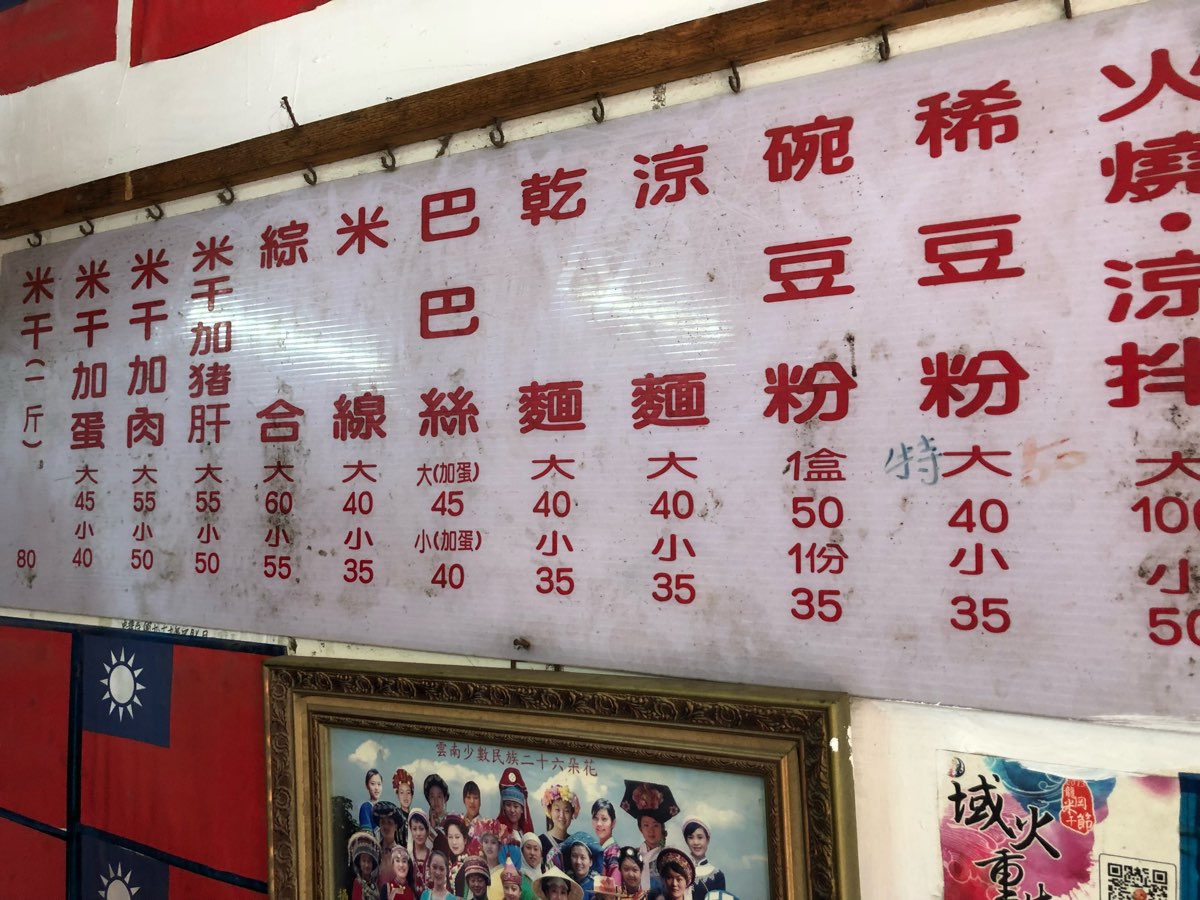 火燒·涼拌
大
100
小
50
稀豆粉
特大 50
40
小
35
碗豆粉
1盒
50
1份
35
涼麵
大
40
小
35
乾麵
大
40
小
35
巴巴絲
大(加蛋)
45
小(加蛋)
40
米線
大
40
小
35
綜合
大
60
小
55
米干加豬肝
大
55
小
50
米干加肉
大
55
小
50
米干加蛋
大
45
小
40
米干(一斤)
80
雲南少數民族二十六朵花
域火重
龍岡米干節